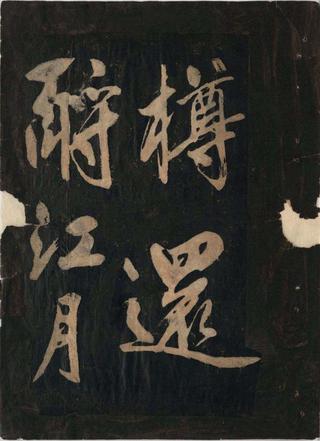 樽還
酹江月